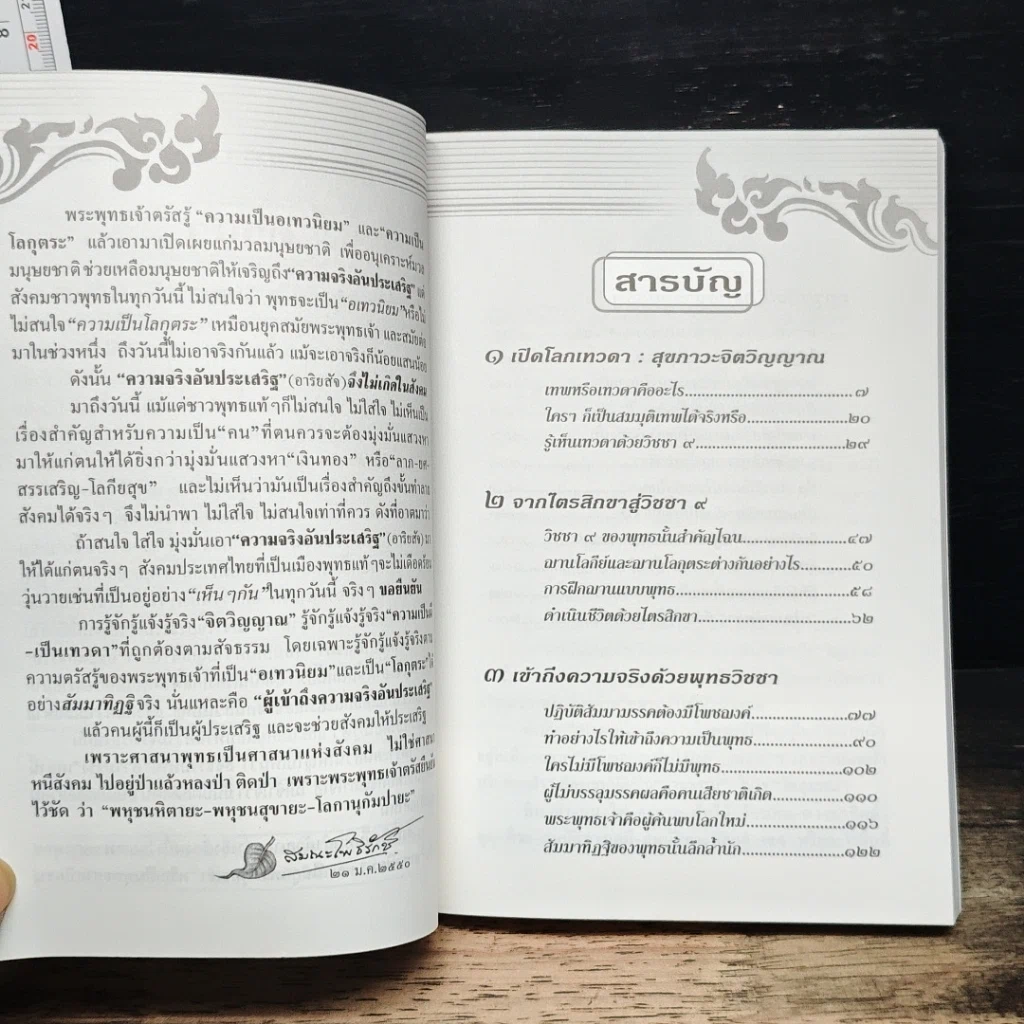 20
พระพุทธเจ้าตรัสรู้ “ความเป็นอเทวนิยม” และ“ความเป็น
โลกุตระ” แล้วเอามาเปิดเผยแก่มวลมนุษยชาติ เพื่ออนุเคราะห์มวล
มนุษยชาติ ช่วยเหลือมนุษยชาติให้เจริญถึง“ความจริงอันประเสริฐ” แต่
สังคมชาวพุทธในทุกวันนี้ ไม่สนใจว่า พุทธจะเป็น “อเทวนิยม”หรือไม่
ไม่สนใจ “ความเป็นโลกุตระ” เหมือนยุคสมัยพระพุทธเจ้า และสมัยต่อ
มาในช่วงหนึ่ง ถึงวันนี้ไม่เอาจริงกันแล้ว แม้จะเอาจริงก็น้อยแสนน้อย
ดังนั้น “ความจริงอันประเสริฐ”(อาริยสัจ) จึงไม่เกิดในสังคม
มาถึงวันนี้ แม้แต่ชาวพุทธแท้ๆก็ไม่สนใจ ไม่ใส่ใจ ไม่เห็นเป็น
เรื่องสำคัญสำหรับความเป็น“คน”ที่ตนควรจะต้องมุ่งมั่นแสวงหา
มาให้แก่ตนให้ได้ยิ่งกว่ามุ่งมั่นแสวงหา“เงินทอง” หรือ“ลาภ-ยศ-
สรรเสริญ-โลกียสุข” และไม่เห็นว่ามันเป็นเรื่องสำคัญถึงขั้นทำลาย
สังคมได้จริงๆ จึงไม่นำพา ไม่ใส่ใจ ไม่สนใจเท่าที่ควร ดังที่อาตมาว่า
ถ้าสนใจ ใส่ใจ มุ่งมั่นเอา“ความจริงอันประเสริฐ”(อาริยสัจ) มา
ให้ได้แก่ตนจริงๆ สังคมประเทศไทยที่เป็นเมืองพุทธแท้ๆจะไม่เดือดร้อน
วุ่นวายเช่นที่เป็นอยู่อย่าง “เห็นๆกัน”ในทุกวันนี้ จริงๆ ขอยืนยัน
การรู้จักรู้แจ้งรู้จริง“จิตวิญญาณ” รู้จักรู้แจ้งรู้จริง“ความเป็นผี
-เป็นเทวดา”ที่ถูกต้องตามสัจธรรม โดยเฉพาะรู้จักรู้แจ้งรู้จริงตาม
ความตรัสรู้ของพระพุทธเจ้าที่เป็น“อเทวนิยม”และเป็น“โลกุตระ”ได้
อย่างสัมมาทิฏฐิจริง นั่นแหละคือ “ผู้เข้าถึงความจริงอันประเสริฐ”
แล้วคนผู้นี้ก็เป็นผู้ประเสริฐ และจะช่วยสังคมให้ประเสริฐ
เพราะศาสนาพุทธเป็นศาสนาแห่งสังคม ไม่ใช่ศาสนา
หนีสังคม ไปอยู่ป่าแล้วหลงป่า ติดป่า เพราะพระพุทธเจ้าตรัสยืนยัน
ไว้ชัด ว่า “พหุชนหิตายะ-พหุชนสุขายะ-โลกานุกัมปายะ”
สมณะโพธิรักษ์
๒๑ ม.ค.๒๕๕๐
สารบัญ
๑ เปิดโลกเทวดา : สุขภาวะจิตวิญญาณ
เทพหรือเทวดาคืออะไร...๗
ใครๆ ก็เป็นสมมุติเทพได้จริงหรือ...๒๐
รู้เห็นเทวดาด้วยวิชชา ๙...๒๙
๒ จากไตรสิกขาสู่วิชชา ๙
วิชชา ๙ ของพุทธนั้นสำคัญไฉน...๔๗
ฌานโลกีย์และฌานโลกุตระต่างกันอย่างไร...๕๐
การฝึกฌานแบบพุทธ...๕๘
ดำเนินชีวิตด้วยไตรสิกขา...๖๒
๓ เข้าถึงความจริงด้วยพุทธวิชชา
ปฏิบัติสัมมามรรคต้องมีโพชฌงค์...๗๗
ทำอย่างไรให้เข้าถึงความเป็นพุทธ...๙๐
ใครไม่มีโพชฌงค์ก็ไม่มีพุทธ...๑๐๒
ผู้ไม่บรรลุมรรคผลคือคนเสียชาติเกิด...๑๑๐
พระพุทธเจ้าคือผู้ค้นพบโลกใหม่...๑๑๖
สัมมาทิฏฐิของพุทธนั้นลึกล้ำนัก...๑๒๒